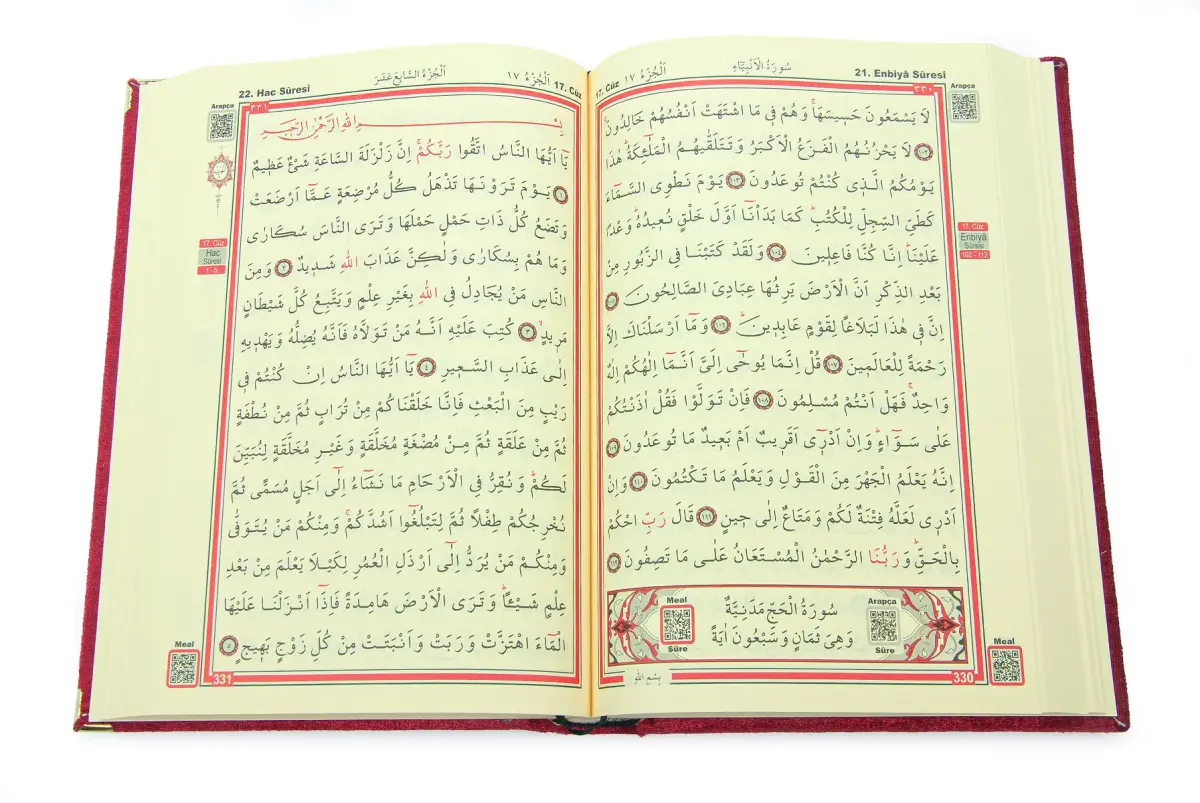 21. Enbiyâ Sûresi
سُورَةُ الْاَنْبِيَٓاءِ
اَلْجُزْءُ ١٧
17. Cüz
Arapça
٣٣٠
لَا يَسْمَعُونَ حَسٖيسَهَاۚ وَهُمْ فٖى مَا اشْتَهَتْ اَنْفُسُهُمْ خَالِدُونَۚ
﴿١٠٢﴾ لَا يَحْزُنُهُمُ الْفَزَعُ الْاَكْبَرُ وَتَتَلَقّٰيهُمُ الْمَلٰٓئِكَةُۜ هٰذَا
يَوْمُكُمُ الَّذٖى كُنْتُمْ تُوعَدُونَ ﴿١٠٣﴾ يَوْمَ نَطْوِى السَّمَٓاءَ
كَطَىِّ السِّجِلِّ لِلْكُتُبِۜ كَمَا بَدَأْنَٓا اَوَّلَ خَلْقٍ نُعٖيدُهُۜ وَعْدًا
عَلَيْنَاۜ اِنَّا كُنَّا فَاعِلٖينَ ﴿١٠٤﴾ وَلَقَدْ كَتَبْنَا فِى الزَّبُورِ مِنْ
بَعْدِ الذِّكْرِ اَنَّ الْاَرْضَ يَرِثُهَا عِبَادِىَ الصَّالِحُونَ ﴿١٠٥﴾
اِنَّ فٖى هٰذَا لَبَلَاغًا لِقَوْمٍ عَابِدٖينَۜ ﴿١٠٦﴾ وَمَٓا اَرْسَلْنَاكَ اِلَّا
رَحْمَةً لِلْعَالَمٖينَ ﴿١٠٧﴾ قُلْ اِنَّمَا يُوحٰٓى اِلَىَّ اَنَّمَٓا اِلٰهُكُمْ اِلٰهٌ
وَاحِدٌۚ فَهَلْ اَنْتُمْ مُسْلِمُونَ ﴿١٠٨﴾ فَاِنْ تَوَلَّوْا فَقُلْ اٰذَنْتُكُمْ
عَلٰى سَوَٓاءٍۜ وَاِنْ اَدْرٖٓى اَقَرٖيبٌ اَمْ بَعٖيدٌ مَا تُوعَدُونَ ﴿١٠٩﴾
اِنَّهُ يَعْلَمُ الْجَهْرَ مِنَ الْقَوْلِ وَيَعْلَمُ مَا تَكْتُمُونَ ﴿١١٠﴾ وَاِنْ
اَدْرٖى لَعَلَّهُ فِتْنَةٌ لَكُمْ وَمَتَاعٌ اِلٰى حٖينٍ ﴿١١١﴾ قَالَ رَبِّ احْكُمْ
بِالْحَقِّۜ وَرَبُّنَا الرَّحْمٰنُ الْمُسْتَعَانُ عَلٰى مَا تَصِفُونَ ﴿١١٢﴾
17. Cüz
Enbiyâ
Sûresi
102 - 112
Arapça
Sûre
سُورَةُ الْحَجِّ مَدَنِيَّةٌ
وَهِىَ ثَمَانٍ وَسَبْعُونَ اٰيَةً
Meal
Sûre
Meal
330
بِسْمِ اللّٰهِ
17. Cüz
اَلْجُزْءُ ١٧
اَلْجُزْءُ السَّابِعُ عَشَرَ
22. Hac Sûresi
Arapça
٣٣١
بِسْمِ اللّٰهِ الرَّحْمٰنِ الرَّحٖيمِ
يَٓا اَيُّهَا النَّاسُ اتَّقُوا رَبَّكُمْۚ اِنَّ زَلْزَلَةَ السَّاعَةِ شَىْءٌ عَظٖيمٌ
﴿١﴾ يَوْمَ تَرَوْنَهَا تَذْهَلُ كُلُّ مُرْضِعَةٍ عَمَّٓا اَرْضَعَتْ
وَتَضَعُ كُلُّ ذَاتِ حَمْلٍ حَمْلَهَا وَتَرَى النَّاسَ سُكَارٰى
وَمَا هُمْ بِسُكَارٰى وَلٰكِنَّ عَذَابَ اللّٰهِ شَدٖيدٌ ﴿٢﴾ وَمِنَ
النَّاسِ مَنْ يُجَادِلُ فِى اللّٰهِ بِغَيْرِ عِلْمٍ وَيَتَّبِعُ كُلَّ شَيْطَانٍ
مَرٖيدٍۙ ﴿٣﴾ كُتِبَ عَلَيْهِ اَنَّهُ مَنْ تَوَلَّاهُ فَاَنَّهُ يُضِلُّهُ وَيَهْدٖيهِ
اِلٰى عَذَابِ السَّعٖيرِ ﴿٤﴾ يَٓا اَيُّهَا النَّاسُ اِنْ كُنْتُمْ فٖى
رَيْبٍ مِنَ الْبَعْثِ فَاِنَّا خَلَقْنَاكُمْ مِنْ تُرَابٍ ثُمَّ مِنْ نُطْفَةٍ
ثُمَّ مِنْ عَلَقَةٍ ثُمَّ مِنْ مُضْغَةٍ مُخَلَّقَةٍ وَغَيْرِ مُخَلَّقَةٍ لِنُبَيِّنَ
لَكُمْۜ وَنُقِرُّ فِى الْاَرْحَامِ مَا نَشَٓاءُ اِلٰٓى اَجَلٍ مُسَمًّى ثُمَّ
نُخْرِجُكُمْ طِفْلًا ثُمَّ لِتَبْلُغُٓوا اَشُدَّكُمْۚ وَمِنْكُمْ مَنْ يُتَوَفّٰى
وَمِنْكُمْ مَنْ يُرَدُّ اِلٰٓى اَرْذَلِ الْعُمُرِ لِكَيْلَا يَعْلَمَ مِنْ بَعْدِ
عِلْمٍ شَيْـًٔاۜ وَتَرَى الْاَرْضَ هَامِدَةً فَاِذَٓا اَنْزَلْنَا عَلَيْهَا
الْمَٓاءَ اهْتَزَّتْ وَرَبَتْ وَاَنْبَتَتْ مِنْ كُلِّ زَوْجٍ بَهٖيجٍ ﴿٥﴾
17. Cüz
Hac
Sûresi
1 - 5
Meal
331